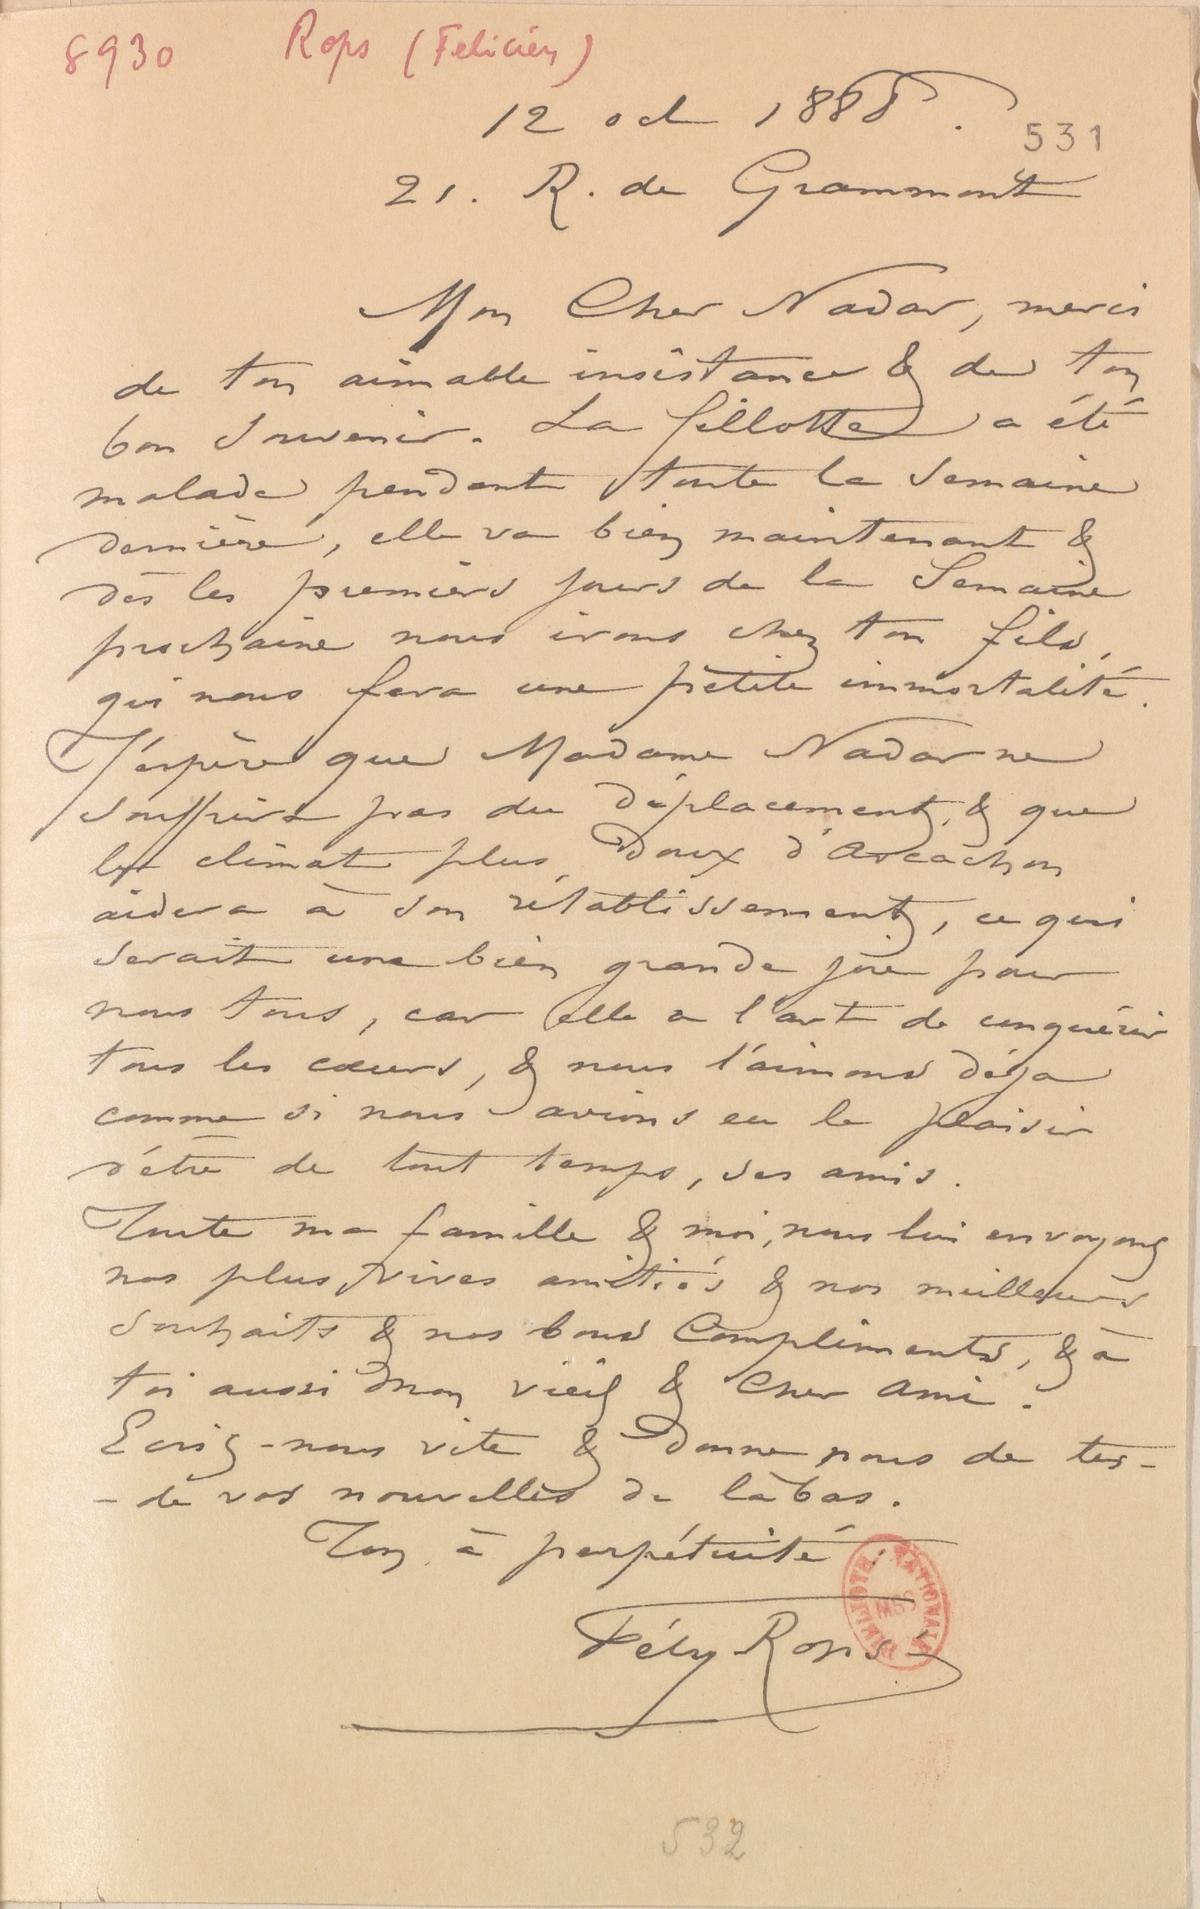 8930 Rops (Félicien)
12 oct 1888.
531
21. R. de Grammont
Mon Cher Nadar, merci
de ton aimable insistance & de ton
bon souvenir. La fillotte a été
malade pendant toute la semaine
dernière, elle va bien maintenant &
dès les premiers jours de la Semaine
prochaine nous irons chez ton fils,
qui nous fera une petite immortalité.
J'espère que Madame Nadar ne
souffrira pas du déplacement, & que
le climat plus doux d'Arcachon
aidera à son rétablissement, ce qui
serait une bien grande joie pour
nous tous, car elle a l'art de conquérir
tous les cœurs, & nous l'aimons déja
comme si nous avions eu le plaisir
d'être de tout temps, ses amis.
Toute ma famille & moi, nous lui envoyons
nos plus vives amitiés & nos meilleurs
souhaits & nos bons Compliments, & à
toi aussi mon vieil & Cher Ami.
Ecris-nous vite & donne nous de tes-
- de vos nouvelles de làbas.
Ton à perpétuité.
Fély Rops
BIBLIOTH NATIONALE MSS
532